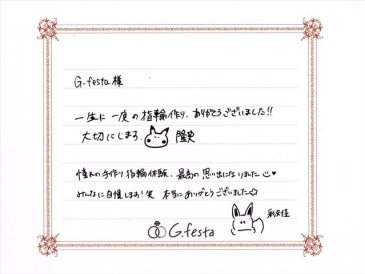 G.festa 様
一生に一度の指輪作り、ありがとうございました!!
大切にします。 隆史
憧れの手作り指輪体験、最高の思い出になりました♥
みんなに自慢します!笑 本当にありがとうございました
G.festa